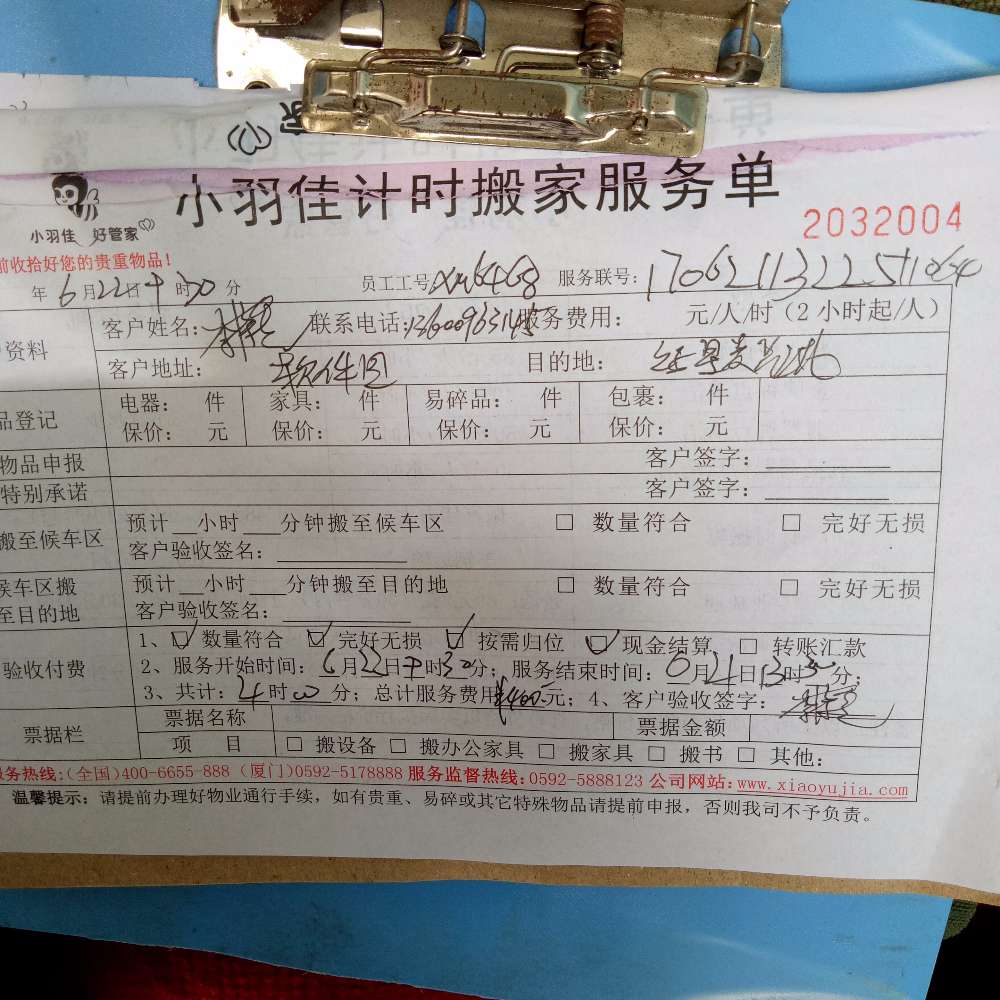 小羽佳计时搬家服务单
小羽佳 好管家
2032004
前收拾好您的贵重物品!
年6月22日 时30分 员工工号:xm6468 服务联号:
资料 客户姓名: 联系电话: 服务费用: 元/人/时(2小时起/人)
客户地址: 软件园 目的地:
品登记 电器: 件 家具: 件 易碎品: 件 包裹: 件
保价: 元 保价: 元 保价: 元 保价: 元
物品申报 客户签字:
特别承诺 客户签字:
搬至候车区 预计 小时 分钟搬至候车区 □ 数量符合 □ 完好无损
客户验收签名:
候车区搬至目的地 预计 小时 分钟搬至目的地 □ 数量符合 □ 完好无损
客户验收签名:
验收付费 1、☑ 数量符合 ☑ 完好无损 ☑ 按需归位 ☑ 现金结算 □ 转账汇款
2、服务开始时间:6月22日 时30分;服务结束时间: 月 日13时30分;
3、共计:4时00分;总计服务费用¥400元;4、客户验收签字:
票据栏 票据名称 票据金额
项 目 □ 搬设备 □ 搬办公家具 □ 搬家具 □ 搬书 □ 其他:
服务热线:(全国)400-6655-888 (厦门)0592-5178888 服务监督热线:0592-5888123 公司网站:www.xiaoyujia.com
温馨提示:请提前办理好物业通行手续,如有贵重、易碎或其它特殊物品请提前申报,否则我司不予负责。